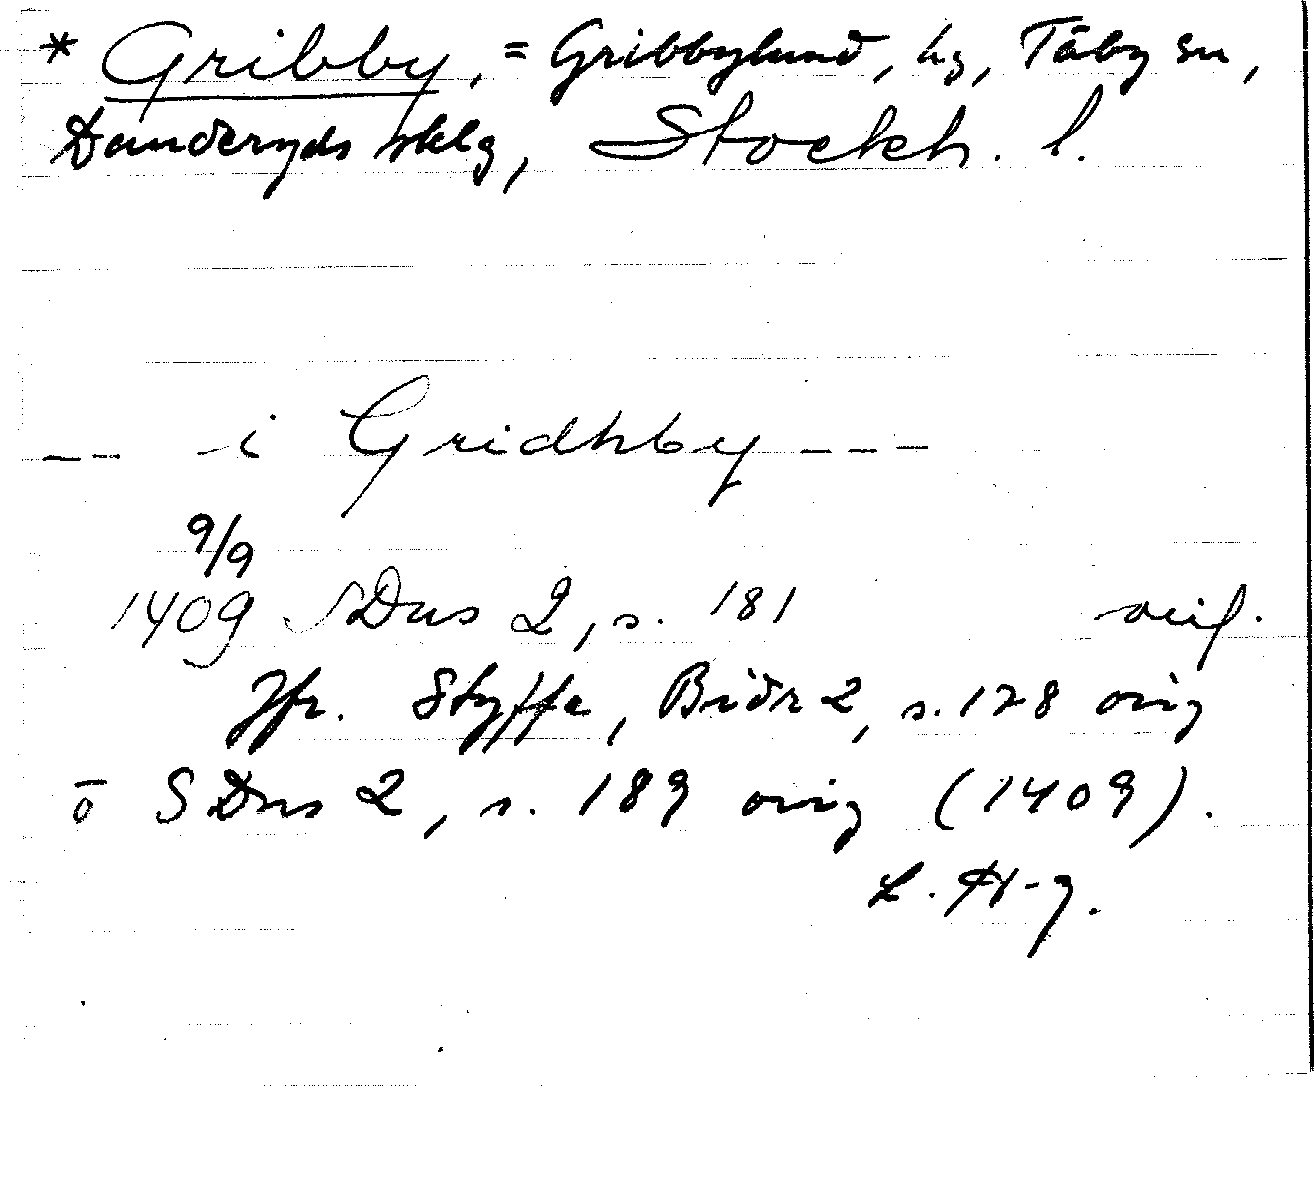 * Gribby, = Gribbylund, hg, Täby sn,
Danderyds sklg, Stockh. l.
-- i Gridhby ---
9/9
1409 SDns 2, s. 181 orig.
Jfr. Styffe, Bidr 2, s. 128 orig
o SDns 2, s. 189 orig (1409).
L. H-g.